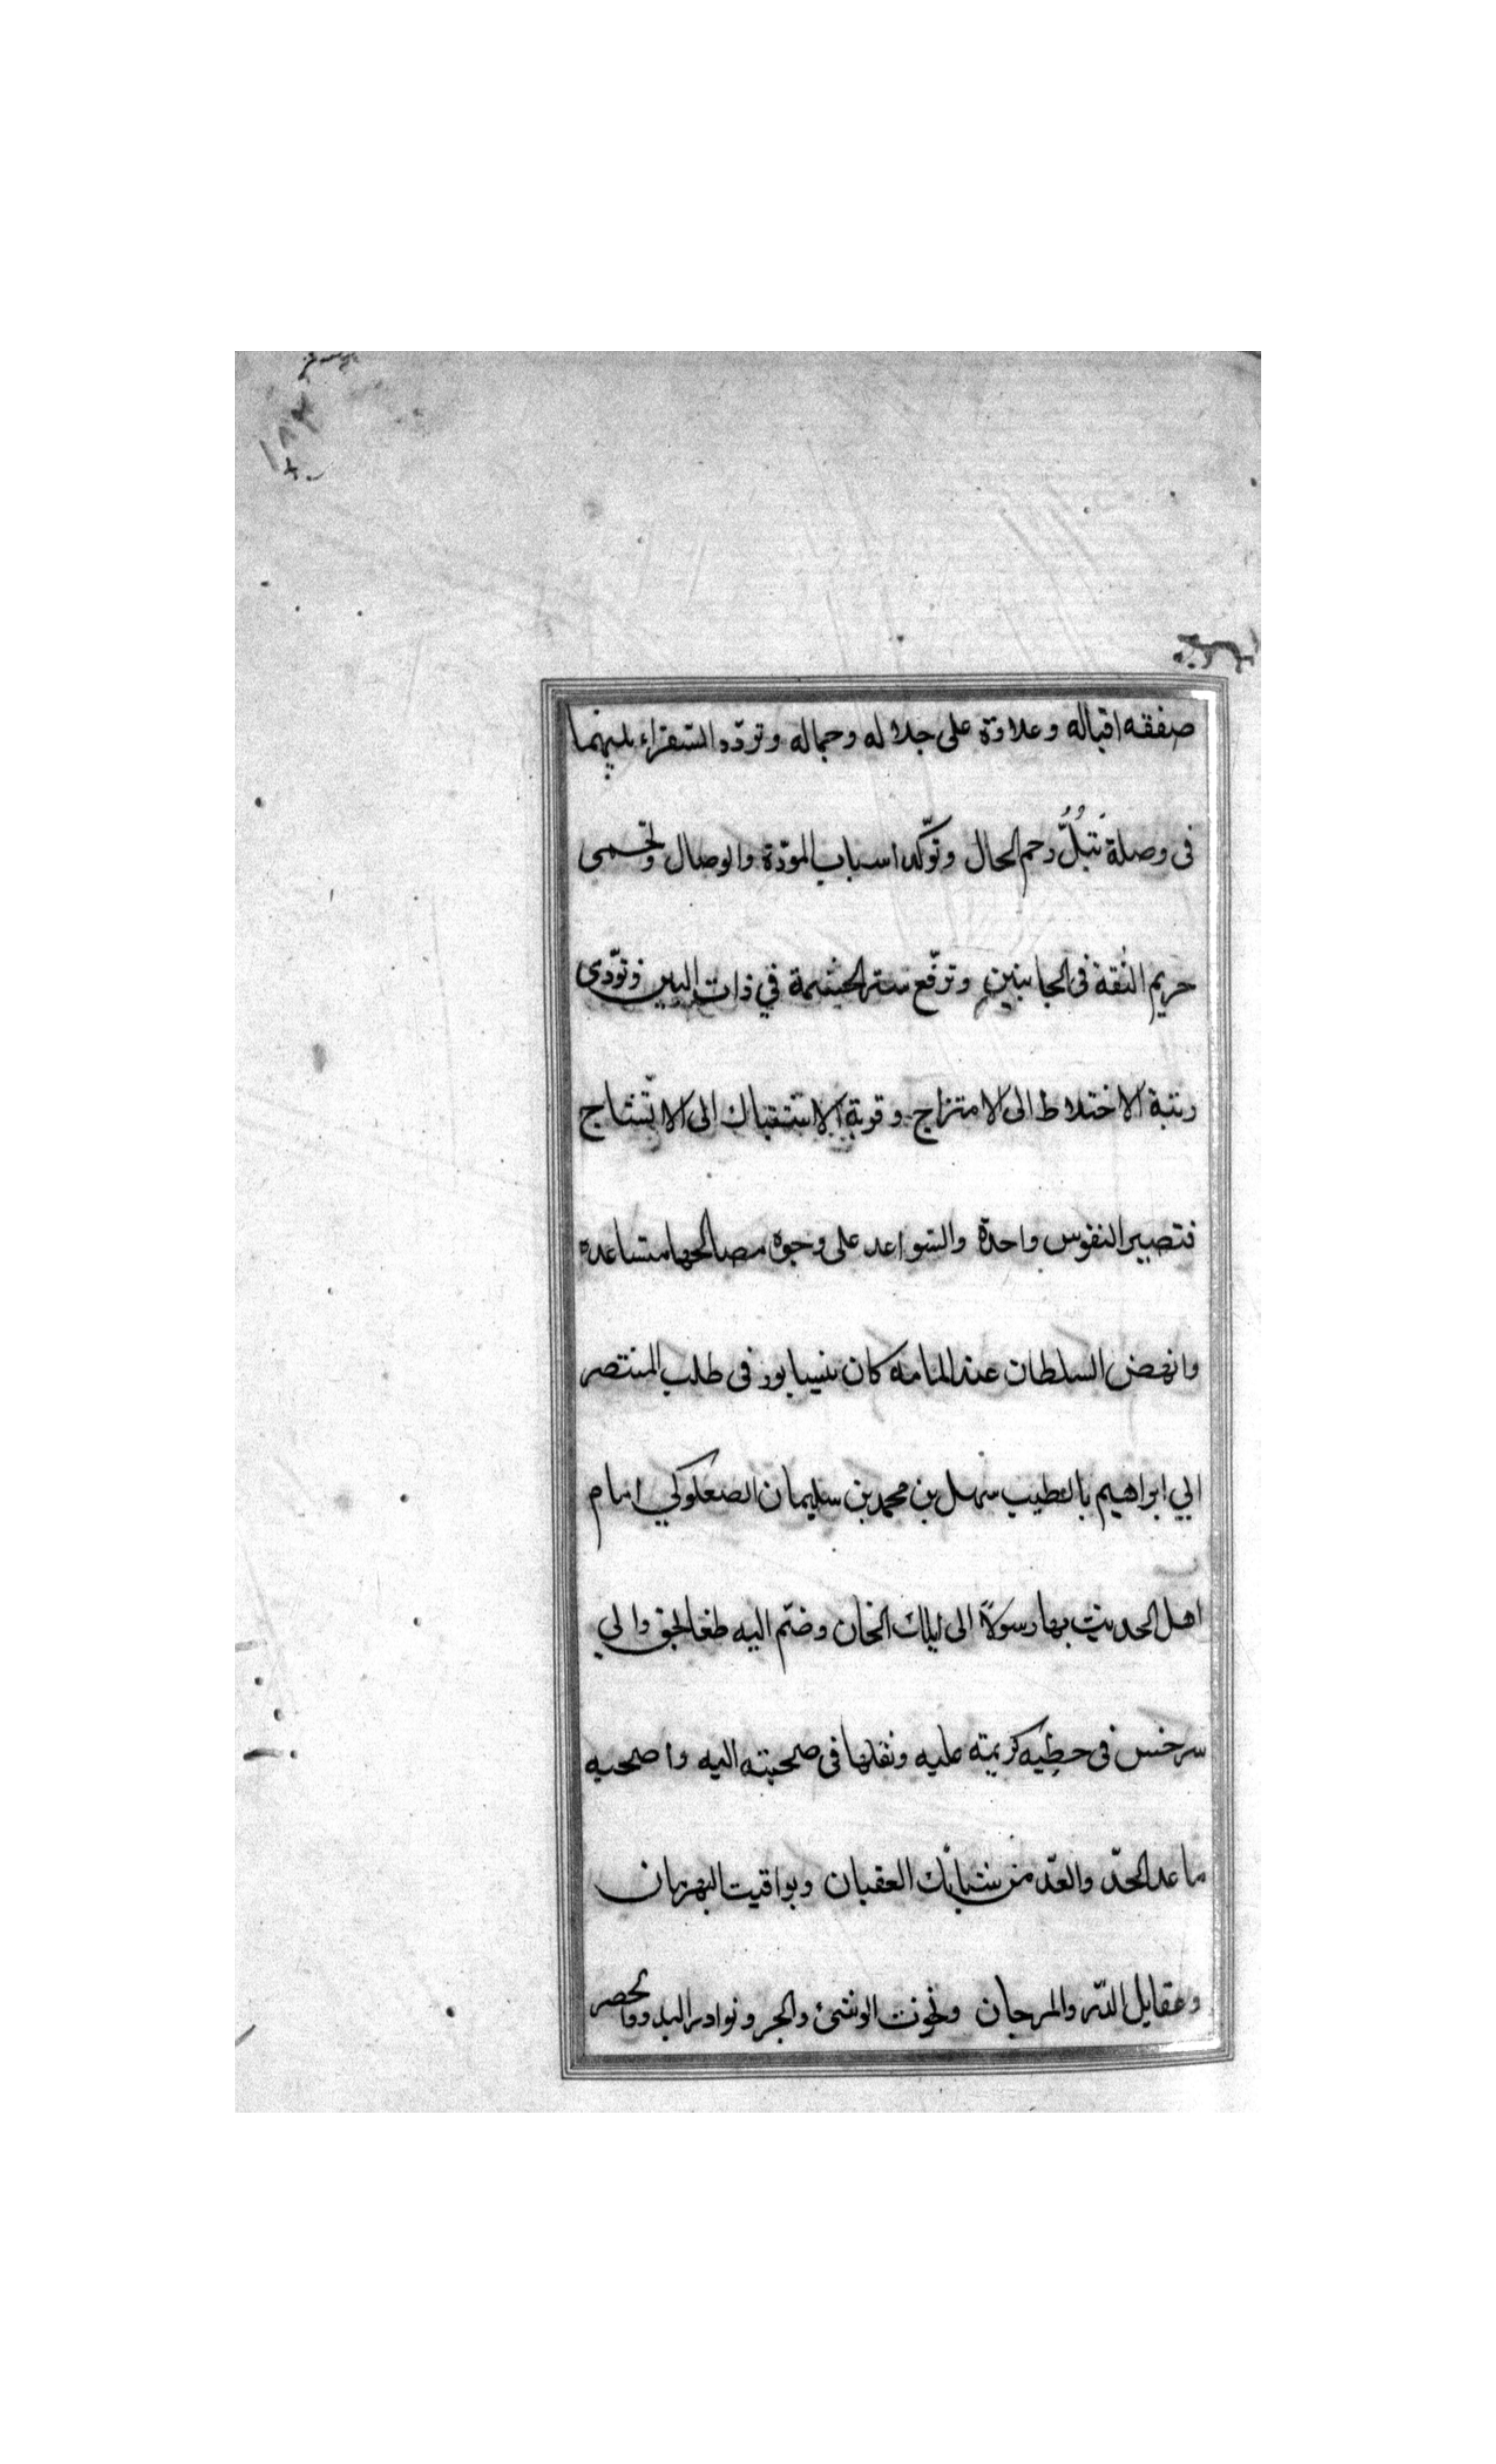 صفقه اقباله وعلاوة على جلاله وجماله وتودّد السفراء بينهما
فى وصلة تَبُلُّ رحم الحال وتوّكد اسباب المودّة والوصال وتحمى
حريم الثقة فى الجانبين وترفّع ستر الحشمة في ذات البين وتوّدى
رتبة الاختلاط الى الامتزاج وقربة الاشتباك الى الاتّشاج
فتصير النفوس واحدة والسواعد على وجوه مصالحها متساعده
وانهض السلطان عند المامه كان بنيسابور فى طلب المنتصر
ابي ابراهيم باالطيب سهل بن محمد بن سليمان الصعلوكي امام
اهل الحديث بها رسولاً الى ايلك الخان وضمّ اليه طغالجق والي
سرخس فى خطِبه كريمته عليه ونقلها فى صحبته اليه واصحبه
ما عد الحدّ والعدّ من سَبائك العقيان ويواقيت البهرمان
وعقايل الدّر والمرجان وتخوت الوشئ والحبر ونوادر البدو والحضر
١٨٣